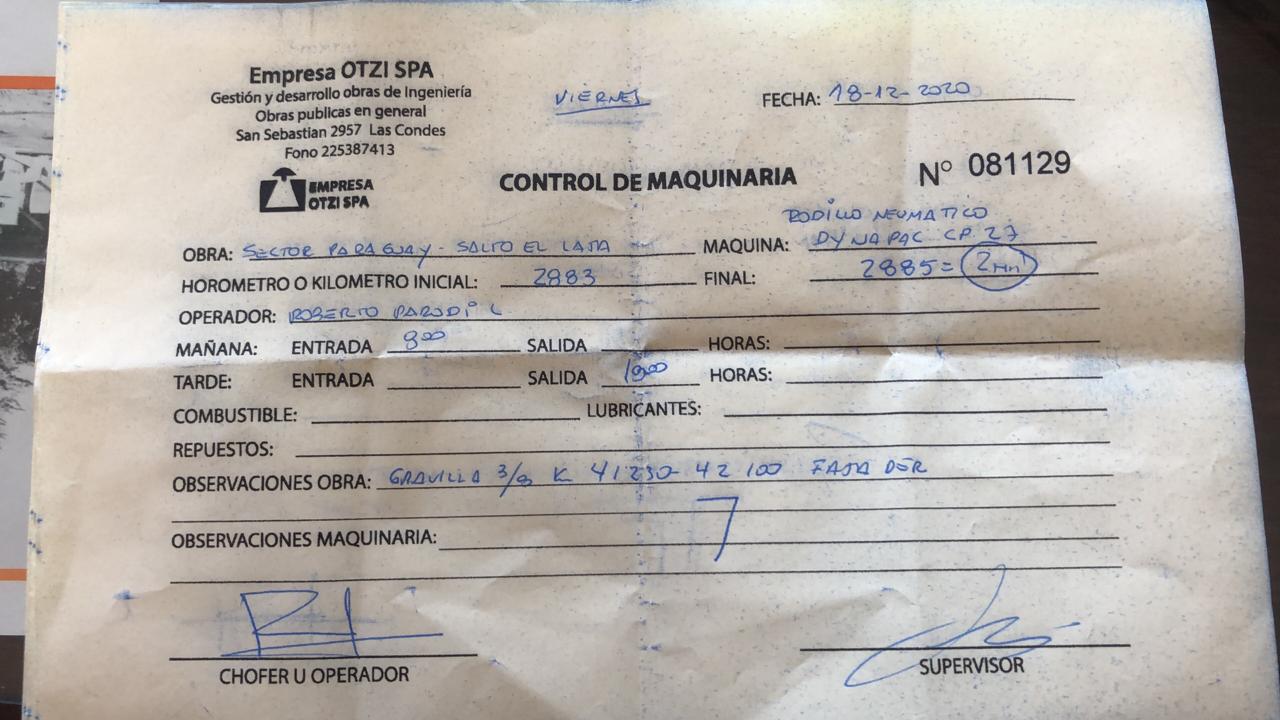 Empresa OTZI SPA
Gestión y desarrollo obras de Ingeniería
Obras publicas en general
San Sebastian 2957 Las Condes
Fono 225387413
EMPRESA
OTZI SPA
VIERNES
FECHA: 18-12-2020
CONTROL DE MAQUINARIA
Nº 081129
OBRA: SECTOR PARAGUAY - SALTO EL LAJA
MAQUINA: RODILLO NEUMATICO
DYNAPAC CP 27
HOROMETRO O KILOMETRO INICIAL: 2883 FINAL: 2885 =
OPERADOR: ROBERTO PARODI L
MAÑANA: ENTRADA 8:00 SALIDA HORAS:
TARDE: ENTRADA SALIDA HORAS:
COMBUSTIBLE: LUBRICANTES:
REPUESTOS:
OBSERVACIONES OBRA: GRAVILLA 3/8 K 41230-42 100 FAJA DER
OBSERVACIONES MAQUINARIA:
CHOFER U OPERADOR
SUPERVISOR